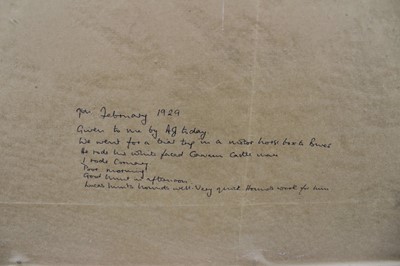 February 1929
Given to me by AJ today
We went for a trial trip in a motor horse box
He rode his white faced Castle mare
I rode
Poor morning
Good hunt in afternoon
Lucas hunts hounds well. Very quiet. Hounds work for him